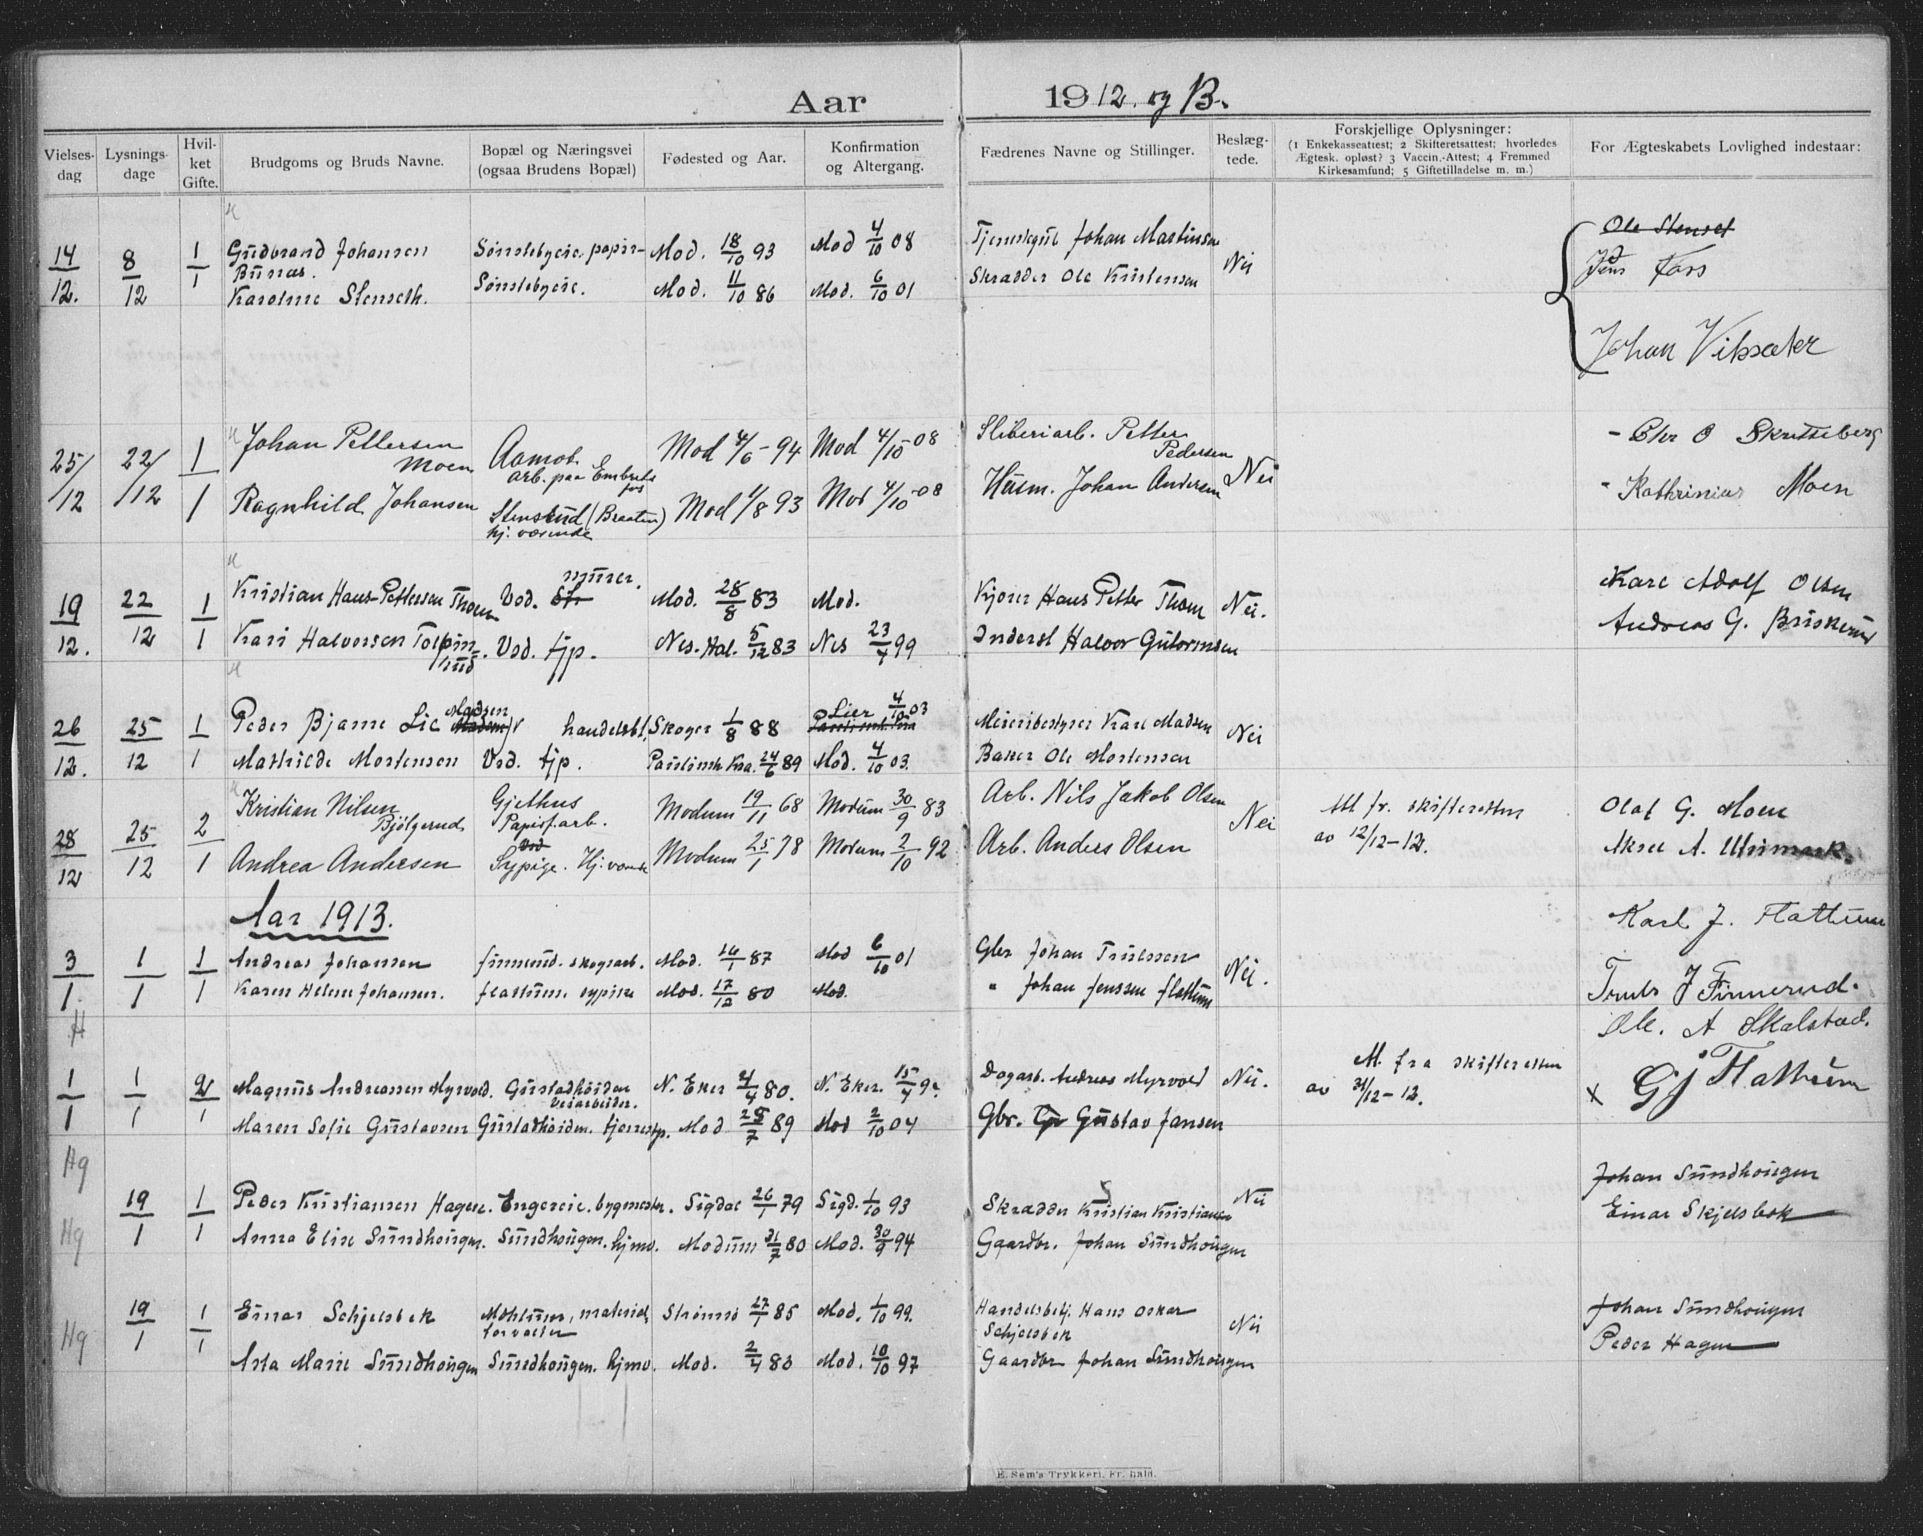 Aar 1912. og 13.
Vielses-dag
Lysnings-dage
Hvil-ket Gifte.
Brudgoms og Bruds Navne.
Bopæl og Næringsvei (ogsaa Brudens Bopæl)
Fødested og Aar.
Konfirmation og Altergang.
Fædrenes Navne og Stillinger.
Beslæg-tede.
Forskjellige Oplysninger:
(1 Enkekasseattest; 2 Skifteretsattest; hvorledes
Ægtesk. opløst? 3 Vaccin.-Attest; 4 Fremmed
Kirkesamfund; 5 Giftetilladelse m. m.)
For Ægteskabets Lovlighed indestaar:
14/12. 8/12 1/1 Gudbrand Johansen Sønstebyeie. papir- Mod. 18/10 93 Mod 4/10 08 Johan Martinsen Nei Ole Stenset
Karoline Stenseth. Sønstebyeie. Mod. 11/10 86 Mod. 6/10 01 Skrædder Ole Kristensen Jens Fors
Johan Viksæter
25/12 22/12 1 Johan Pettersen Moen Aamot arb. paa Embretsfos Mod 4/6-94 Mod 4/10-08 Sliberiarb. Petter Pedersen Nei - Chr O Skretteberg
1 Ragnhild Johansen Stensrud (Braaten) hj. værende Mod 1/8 93 Mod 4/10-08 Husm. Johan Andersen - Kathrinius Moen
19/12. 22/12 1 Kristian Hans-Pettersen Thoen Vod. murer. Mod. 28/8 83 Mod. Kjører Hans Petter Thoen Nei. Karl Adolf Olsen
1 Kari Halvorsen Vod. tjp. Nes. Hal. 5/12 83 Nes 23/4 99 Inderst Halvor Gutormsen Andreas G. Briskerud
26/12. 25/12 1 Peder Bjarne Lie Madsen handelsbt. Skoger 1/8 88 Lier 4/10 03 Meieribestyrer Karl Madsen Nei
1 Mathilde Mortensen Vod. tjp. Paulimh. Kra. 24/6 89 Mod. 4/10 03. Baker Ole Mortensen
28/12 25/12 2 Kristian Nilsen Bjølgerud Gjethus Papirf. arb. Modum 19/11 68 Modum 30/9 83 Arb. Nils Jakob Olsen Nei Att fr. skifteretten av 12/12-12. Olaf G. Moen
1 Andrea Andersen Vod Sypige. Hj. værende Modum 25/1 78 Modum 2/10 92 Arb. Anders Olsen Aksel A.
Aar 1913.
Karl J. Flattum
3/1. 1/1 1/1 Andreas Johansen Finnerud. skogsarb. Mod. 16/1 87 Mod 6/10 01 Gbr Johan Trulssen Nei. Truls J Finnerud.
Karen Helene Johansen. Flattum. sypike Mod. 17/12 80 Mod. " Johan Jenssen Flattum
H
Ole. A Skalstad.
1/1 1/1 2/1 Magnus Andreassen Myrvold. Gustadhøiden Veiarbeider. N. Eker 4/4 80. N. Eker. 15/4 9 Dagarb. Andreas Myrvold Nei. At. fra skifteretten av 31/12-12. x G J Flattum
Maren Sofie Gustavsen Gustadhøiden. tjenestp. Mod 25/7 89 Mod 2/10 04 Gbr. Gustav Jansen
Hg
Hg 19/1 1/1 Peder Kristiansen Hagen. Engereie. bygmestr. Sigdal 26/1 79 Sigd. 1/10 93 Skrædder Kristian Kristiansen Nei Johan Sundhougen
Anna Elise Sundhougen. Sundhougen. hjmv. Modum 31/7 80 Mod. 30/9 94 Gaardbr. Johan Sundhougen Einar Skjelsbek
Hg 19/1 1/1 Einar Schjelsbek material forvalter Strømsø 27/1 85 Mod. 1/10 99. Handelsbetj. Hans Oskar Schjelsbek Nei Johan Sundhougen
Asta Marie Sundhougen Sundhougen. hjmv. Mod. 2/4 83 Mod. 10/10 97 Gaardbr Johan Sundhougen Peder Hagen
E. Sem's Trykkeri, Fr. hald.